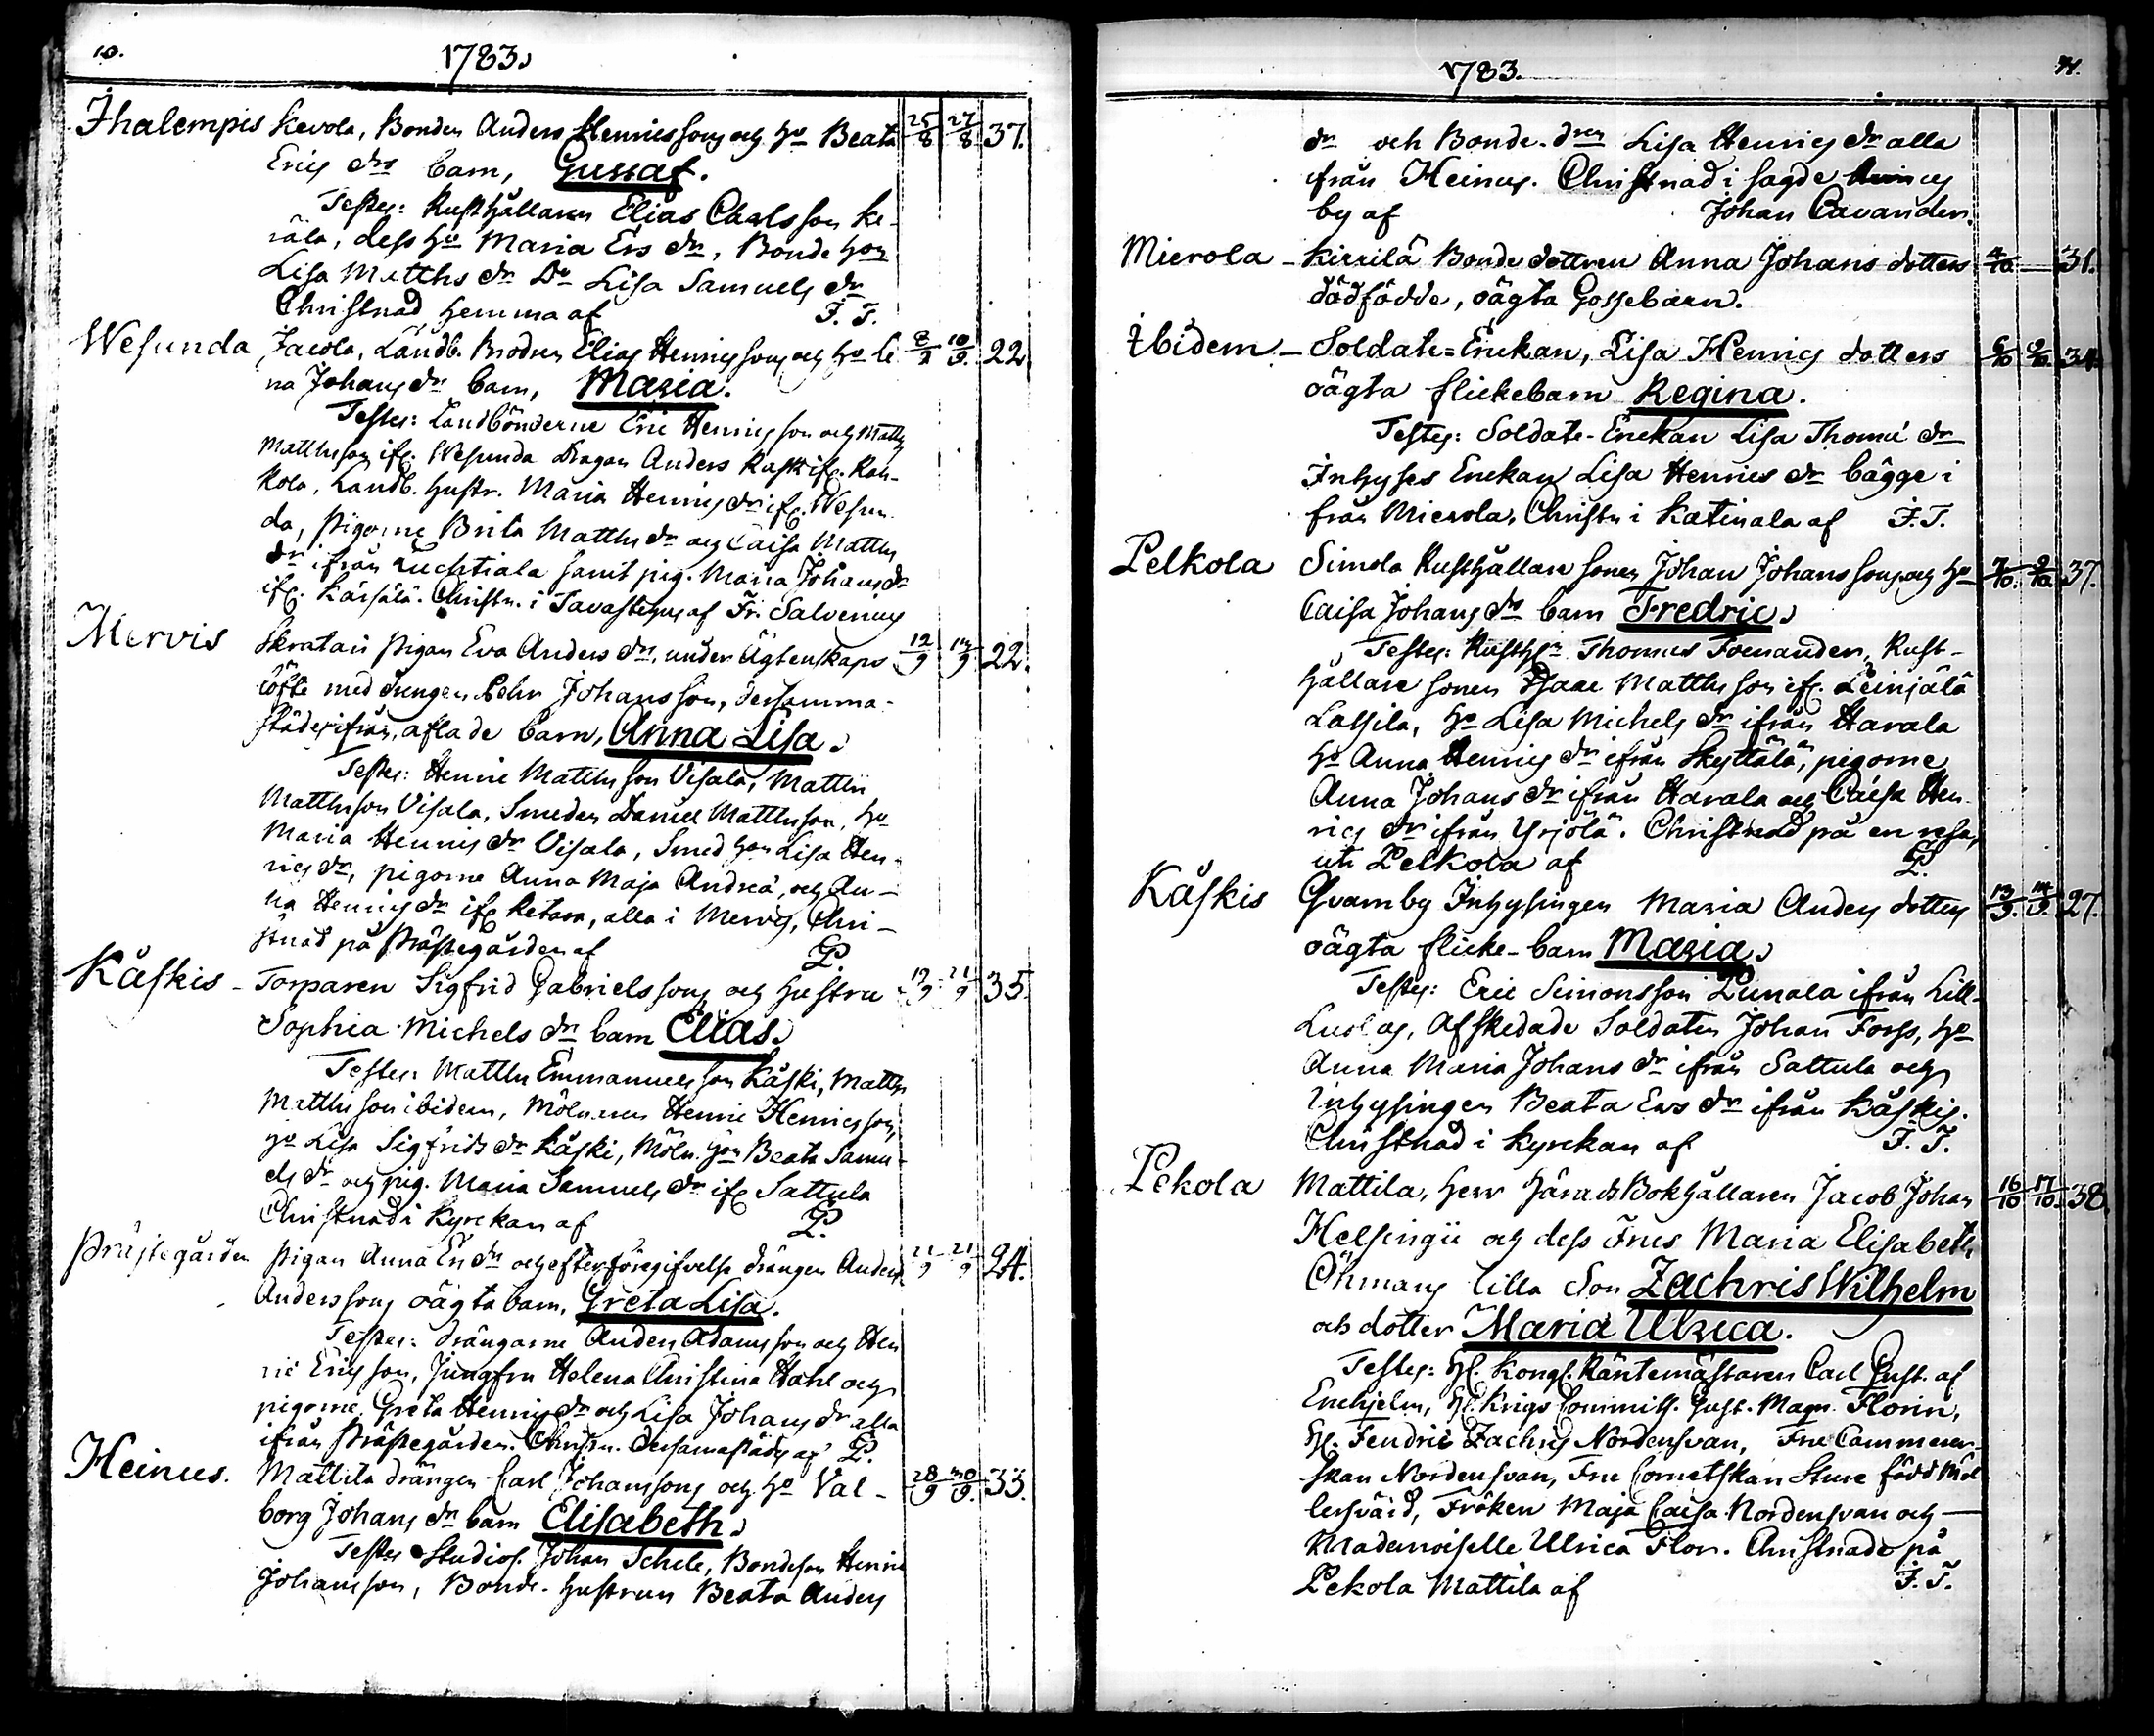 10.
1783.
Ihalempis Kevola, Bonden Anders Henrics sons och Ho Beata 25/8 27/8 37.
Erics drs barn, Gustaf.
Testes: Rusthållaren Elias Carlsson Ke-
räla, dess Ho Maria Ers dr, Bonde hon
Lisa Matths dr Do Lisa Samuels dr
Christnad hemma af F. T.
Wesunda Jacola, Landb. Brodren Elias Henrics sons och Ho Le 8/9 10/9. 22.
na Johans dr barn, Maria.
Testes: Landbönderne Eric Henrics son och Matts
Matthsson ifr. Wesunda Dragon Anders Rask ifr.
kola, Landb. Hustr. Maria Henrics dr ifr. Wesun
da, pigorne Brita Matths dr och Caisa Matths
dr ifrån Luchtiala samt pig. Maria Johans dr
ifr. Kärsälä. Christn. i Tavastehus af Fr. Salvenius
Mervis Skratari pigan Eva Anders dr, under Ägtenskaps 12/9 14/9 22.
löfte med drengen Pehr Johansson, dersamma-
städes ifrån, aflade barn, Anna Lisa.
Testes: Henric Matths son Visala, Matths
Matthsson Visala, Smeden Daniel Matthsson, Ho
Maria Henrics dr Visala, Smed hon Lisa Hen-
rics dr, pigorne Anna Maja Andreæ, och An-
na Henrics dr ifr Ketara, alla i Mervis, Chri-
stnad på Prästegården af P.
Käskis - Torparen Sigfrid Gabrielssons och hustru 19/9 21/9 35.
Sophia Michels dr barn Elias.
Testes: Matths Emmanuels son Käski, Matths
Matths son ibidem, Mölnaren Henric Henricsson,
Ho Lisa Sigfrids dr Käski, Möln. hon Beata Samu-
els dr och pig. Maria Samuels dr ifr Sattula
Christnad i Kyrckan af P.
Prästegården Pigan Anna Eri dr och efter föregifvelse drängen Anders 21/9 21/9 24.
Anderssons oägta barn, Greta Lisa.
Testes: Drängarne Anders Adamsson och Hen
ric Ericsson, Jungfru Helena Christina Hahl och
pigorne Greta Henrics dr och Lisa Johans dr alla
ifrån Prästegården. Christn. dersamastädes af P.
Heinus. Mattila drängen Carl Johanssons och Ho Val- 28/9 30/9. 33.
borg Johans dr barn Elisabeth.
Testes Studios. Johan Schele, Bondeson Henric
Johansson, Bonde-hustrun Beata Anders
1783.
11.
dr och Bonde-dren Lisa Henrics dr alla
ifrån Heinus. Christnad i sagde
by af Johan Cavander.
Mierola - Kirrilä Bonde dottren Anna Johans dotters 4/10 — 31.
dödfödde, oägta Gossebarn.
Ibidem - Soldate=Enckan, Lisa Henrics dotters 6/10 9/10. 34
oägta flickebarn Regina.
Testes: Soldate-Enckan Lisa Thomæ dr
Inhyses Enckan Lisa Henrics dr bägge i
från Mierola, Christn i Katinala af F. T.
Pelkola Simola Rusthållare sonen Johan Johanssons och Ho 7/10. 9/10. 37.
Caisa Johans drs barn Fredric.
Testes: Rusthn Thomas Forenander, Rust-
hållare sonen Isaac Matths son ifr. Leinjälä
Lassila, Ho Lisa Michels dr ifrån Harala
Ho Anna Henrics dr ifrån Skyttälä, pigorne
Anna Johans dr ifrån Harala och Caisa Hen-
rics dr ifrån Yrjölä. Christnad på en resa,
uti Pelkola af P.
Käskis Qvarnby Inhysingen Maria Anders dotters 13/9. 14/9. 27.
oägta flicke-barn Maria.
Testes: Eric Simonsson Punala ifrån Lill-
Afskedade Soldaten Johan Forss, Ho
Anna Maria Johans dr ifrån Sattula och
Inhysingen Beata Ers dr ifrån Käskis.
Christnad i Kyrckan af F. T.
Pekola Mattila, Herr Härads Bokhållaren Jacob Johan 16/10 17/10. 38.
Helsingii och dess Frus Maria Elisabeth
Öhmans lilla Son Zachris Wilhelm
och dotter Maria Ulrica.
Testes: H. Kongl. Räntemästaren Carl Gust. af
Enehjelm, H. Krigs Commiss. Gust. Magn. Florin,
H. Fendric Zachris Nordensvan, Fru Cammerer-
skan Nordensvan, Fru Cornetskan Sture född Möl
lersvärd, Fröken Maja Caisa Nordensvan och —
Mademoiselle Ulrica Flor. Christnade på
Pekola Mattila af F. T.